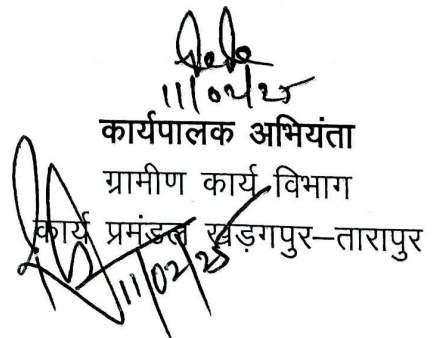 11/02/25
कार्यपालक अभियंता
ग्रामीण कार्य विभाग
कार्य प्रमंडल खड़गपुर–तारापुर
11/02/25